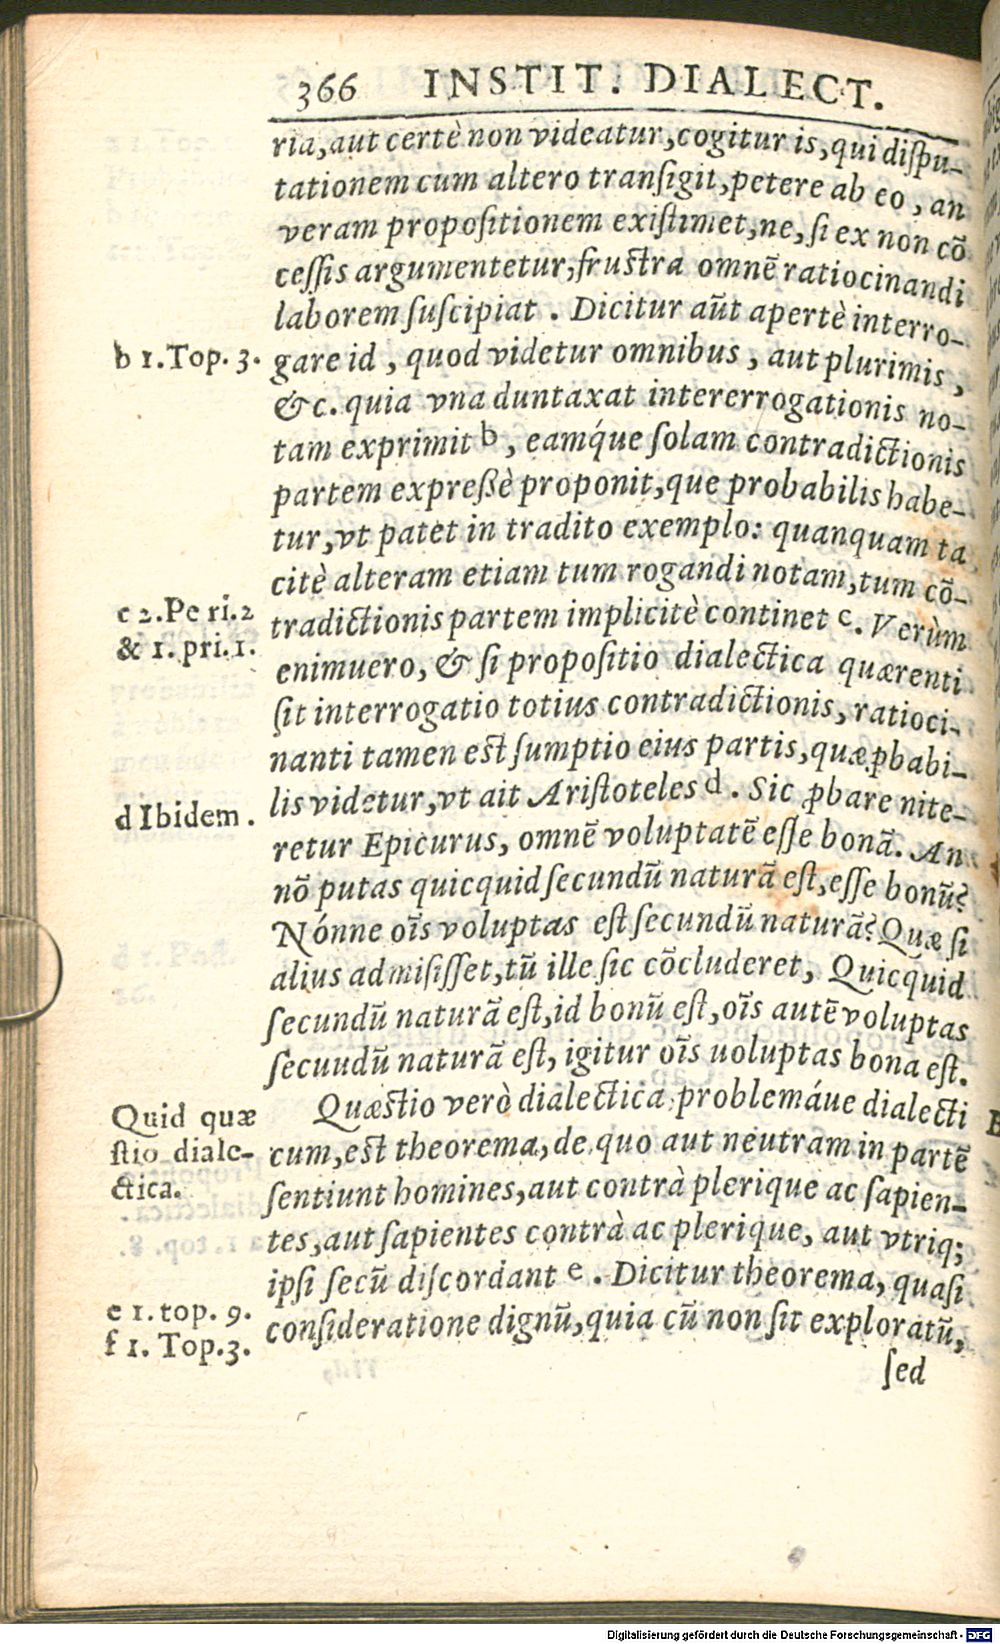 366 INSTIT. DIALECT.
ria, aut certè non videatur, cogitur is, qui dispu-
tationem cum altero transigit, petere ab eo, an
veram propositionem existimet, ne, si ex non cõ
cessis argumentetur, frustra omnē ratiocinandi
laborem suscipiat. Dicitur aūt apertè interro-
b 1. Top. 3.
gare id, quod videtur omnibus, aut plurimis,
&c. quia vna duntaxat intererrogationis no-
tam exprimit b, eamq́ue solam contradictionis
partem expreßè proponit, que probabilis habe-
tur, vt patet in tradito exemplo: quanquam ta
citè alteram etiam tum rogandi notam, tum cõ-
c 2. Pe ri. 2
& 1. pri. 1.
tradictionis partem implicitè continet c. Verùm
enimuero, & si propositio dialectica quærenti
sit interrogatio totius contradictionis, ratioci-
nanti tamen est sumptio eius partis, quæ ꝓbabi-
d Ibidem.
lis videtur, vt ait Aristoteles d. Sic ꝓbare nite-
retur Epicurus, omnē voluptatē esse bonã. An
nõ putas quicquid secundū naturã est, esse bonū?
Nónne oīs voluptas est secundū naturã? Quæ si
alius admisisset, tū ille sic cõcluderet, Quicquid
secundū naturã est, id bonū est, oīs autē voluptas
secuudū naturã est, igitur oīs uoluptas bona est.
Quid quæ
stio diale-
ctica.
Quæstio verò dialectica, problemáue dialecti
cum, est theorema, de quo aut neutram in partē
sentiunt homines, aut contrà plerique ac sapien-
tes, aut sapientes contrà ac plerique, aut vtriq;
ipsi secū discordant e. Dicitur theorema, quasi
e 1. top. 9.
f 1. Top. 3.
consideratione dignū, quia cū non sit exploratū,
sed
Digitalisierung gefördert durch die Deutsche Forschungsgemeinschaft - DFG